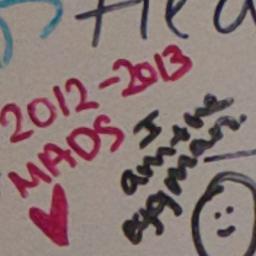 2012-2013
MADS
I
am the
eggman.